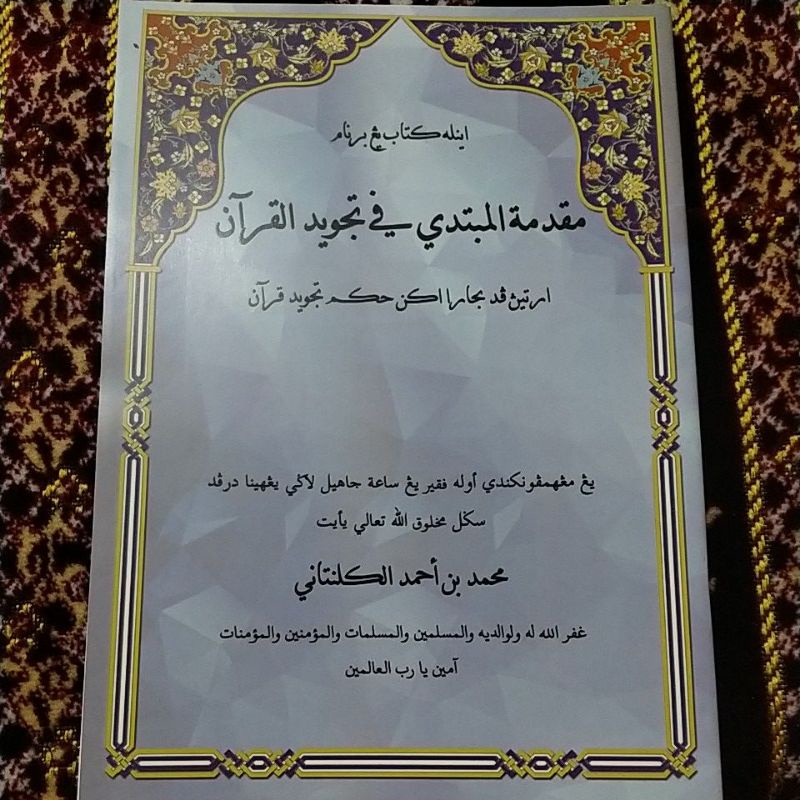 اينله كتاب يڠ برنام
مقدمة المبتدي في تجويد القرآن
ارتيڽ ڤد بچارا اكن حكم تجويد قرآن
يڠ مڠهمڤونكندي أوله فقير يڠ ساعة جاهيل لاڬي يڠهينا درڤد
سكل مخلوق الله تعالي يأيت
محمد بن أحمد الكلنتاني
غفر الله له ولوالديه والمسلمين والمسلمات والمؤمنين والمؤمنات
آمين يا رب العالمين